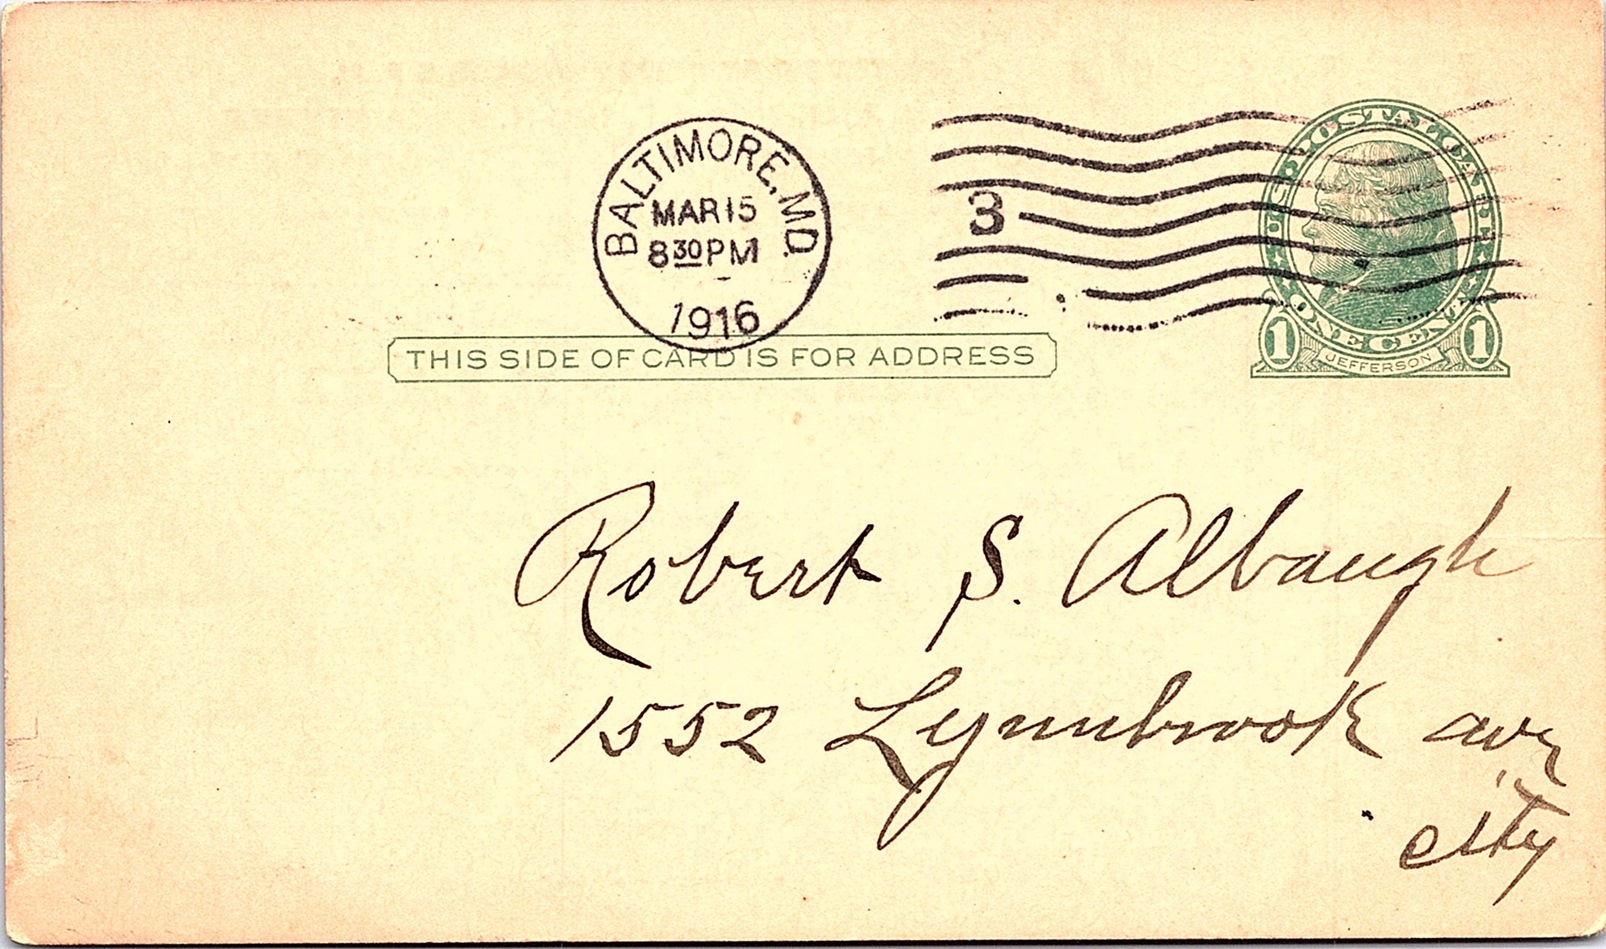 BALTIMORE, MD.
MAR 15
8 30 PM
1916
3
U·S·POSTAL CARD
ONE CENT
1 JEFFERSON 1
THIS SIDE OF CARD IS FOR ADDRESS
Robert S. Albaugh
1552 Lynnbrook ave
city